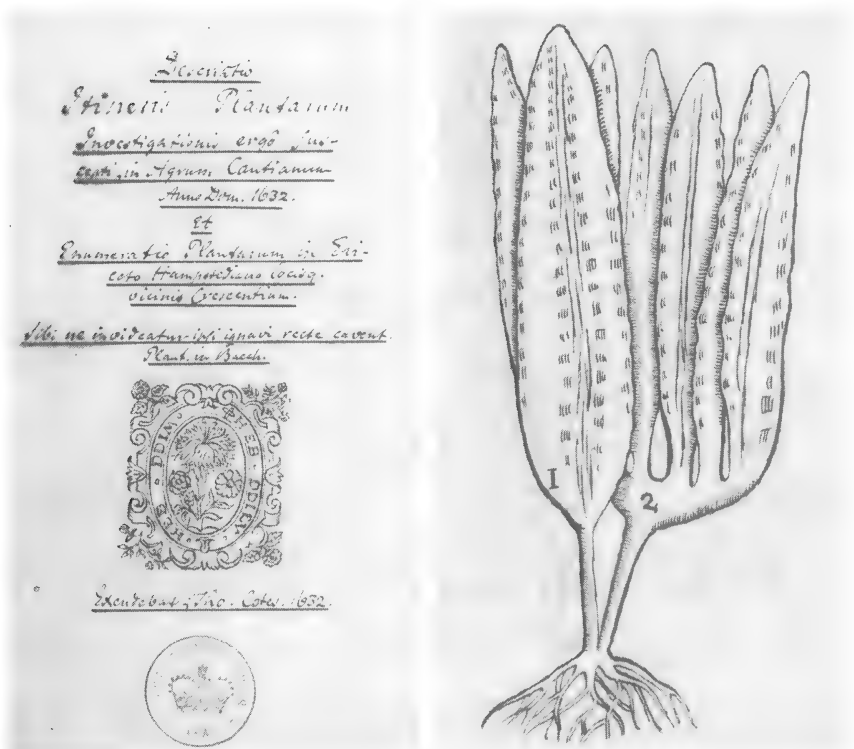 Descriptio
Itineris Plantarum
Investigationis ergô Sus-
cepti, in Agrum Cantianum
Anno Dom. 1632.
Et
Enumeratio Plantarum in Eri-
ceto Hampstediano locisq.
vicinis Crescentium.
Sibi ne invideatur ipsi ignavi recte cavent.
Plaut. in Bacch.
Excudebat, Tho. Cotes. 1632.
1
2